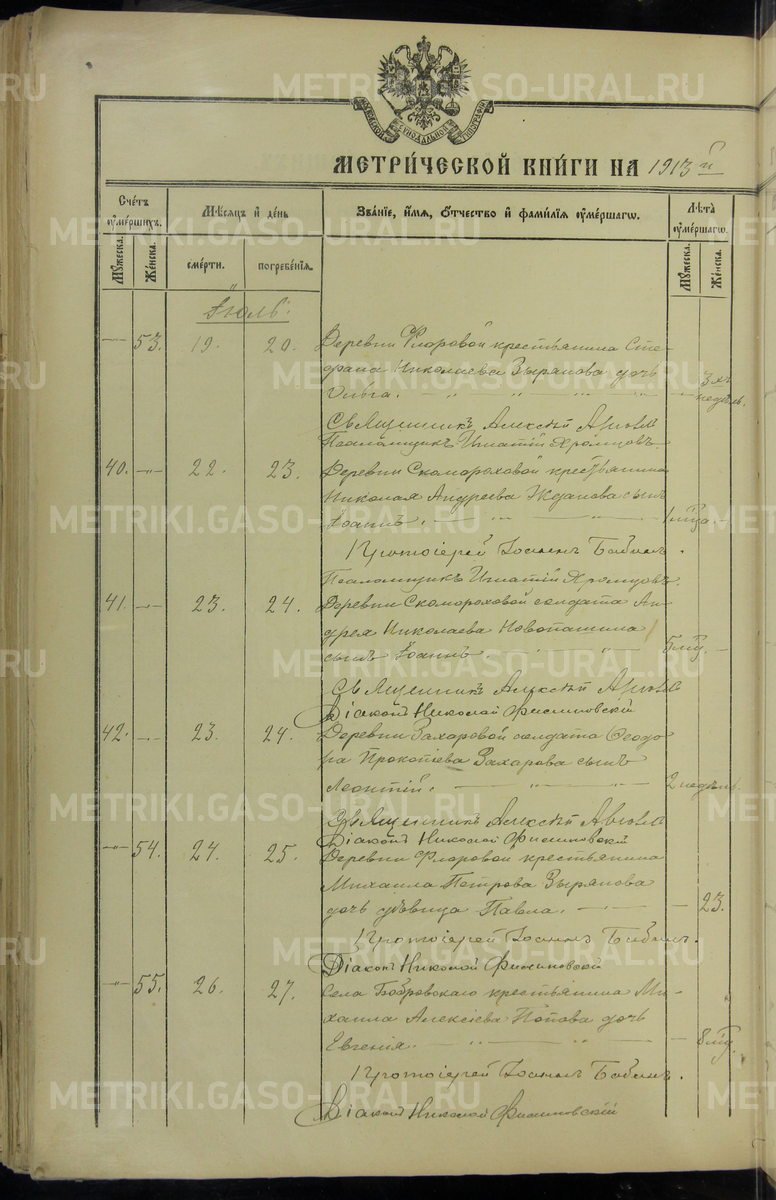 МОСКОВСКОЙ СѴНОДАЛЬНОЙ ТИПОГРАФІИ
МЕТРИ́ЧЕСКОЙ КНИ́ГИ НА 1913 й
Сче́тъ ᲂу҆ме́ршихъ.
Мѣ́сяцъ и҆ де́нь
Зва́нїе, и҆́мя, ѻ҆́тчество и҆ фами́лїя ᲂу҆ме́ршагѡ.
Лѣ́та ᲂу҆ме́ршагѡ.
Мꙋ́жеска. Же́нска. сме́рти. погребе́нїя. Мꙋ́жеска. Же́нска.
Іюль.
— 53. 19. 20. Деревни Флоровой крестьянина Сте-
фана Николаева Зырянова дочь
Ольга. 3 хъ недѣль.
Священникъ Алексѣй
Псаломщикъ Игнатій Хромцовъ.
40. — 22. 23. Деревни Скомороховой крестьянина
Николая Андреева Жданова сынъ
Іоаннъ. 1 мца. —
Протоіерей Іоаннъ Бабинъ.
Псаломщикъ Игнатій Хромцовъ.
41. — 23. 24. Деревни Скомороховой солдата Ан-
дрея Николаева Новопашина
сынъ Іоаннъ 5 мц. —
Священникъ Алексѣй
Діаконъ Николай
42. — 23. 24. Деревни Захаровой солдата Ѳеодо-
ра Прокопіева Захарова сынъ
Леонтій. 2 недѣль.
Священникъ Алексѣй
Діаконъ Николай
— 54. 24. 25. Деревни Флоровой крестьянина
Михаила Петрова Зырянова
дочь дѣвица Павла. — 23.
Протоіерей Іоаннъ Бабинъ.
Діаконъ Николай
— 55. 26. 27. Села Бобровскаго крестьянина Ми-
хаила Алексіева Попова дочь
Евгенія. — 8 мц.
Протоіерей Іоаннъ Бабинъ.
Діаконъ Николай
METRIKI.GASO-URAL.RU